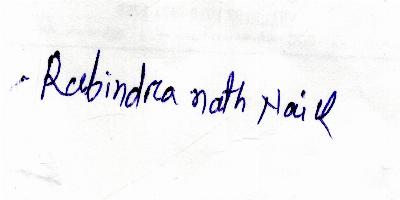 Rabindra nath Naik